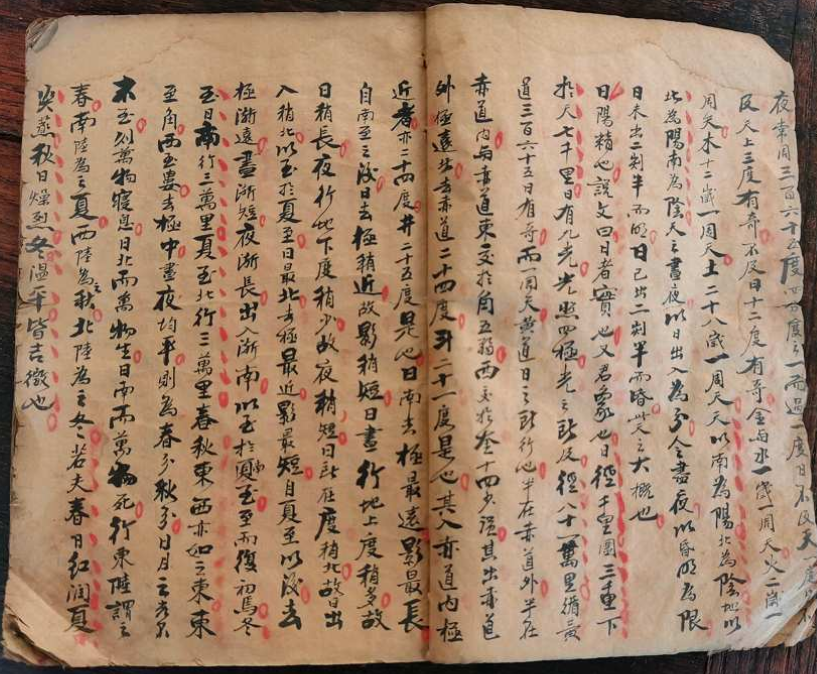 夜常周三百六十五度四分度之一而過一度日不及天一度
及天上三度有奇不及日十二度有奇金与水一歲一周天火二歲一
周天木十二歲一周天土二十八歲一周天天以南為陽北為陰地以
北為陽南為陰天之晝夜以日出入為分人之晝夜以昏明為限
日未出二刻半而明日已出二刻半而昏此之大概也
日陽精也説文曰日者實也又君象也日徑千里圍三千里下
於天七千里日有九光光照四極光之所及徑八十一萬里循黃
道三百六十五日有奇而一周天黃道日之所行也半在赤道外半在
赤道内与赤道東交於角五弱西交於奎十四少强其出赤道
外極遠者去赤道二十四度斗二十一度是也其入赤道内極
近者亦二十四度井二十五度是也日南去極最遠影最長
自南至之後日去極稍近故影稍短日晝行地上度稍多故
日稍長夜行地下度稍少故夜稍短日所在度稍北故日出
入稍北以至於夏至日最北去極最近影最短自夏至以後去
極漸遠晝漸短夜漸長出入漸南以至於南至而復初焉冬
至日南行三萬里夏至北行三萬里春秋東西亦如之東
至角西至婁去極中晝夜均平則為春分秋分日月
未至则萬物寢息日北而萬物生日南而萬物死行東陸謂之
春南陸為之夏西陸為之秋北陸為之冬若夫春日紅潤夏
炎蒸秋日燥烈冬溫平皆吉徵也